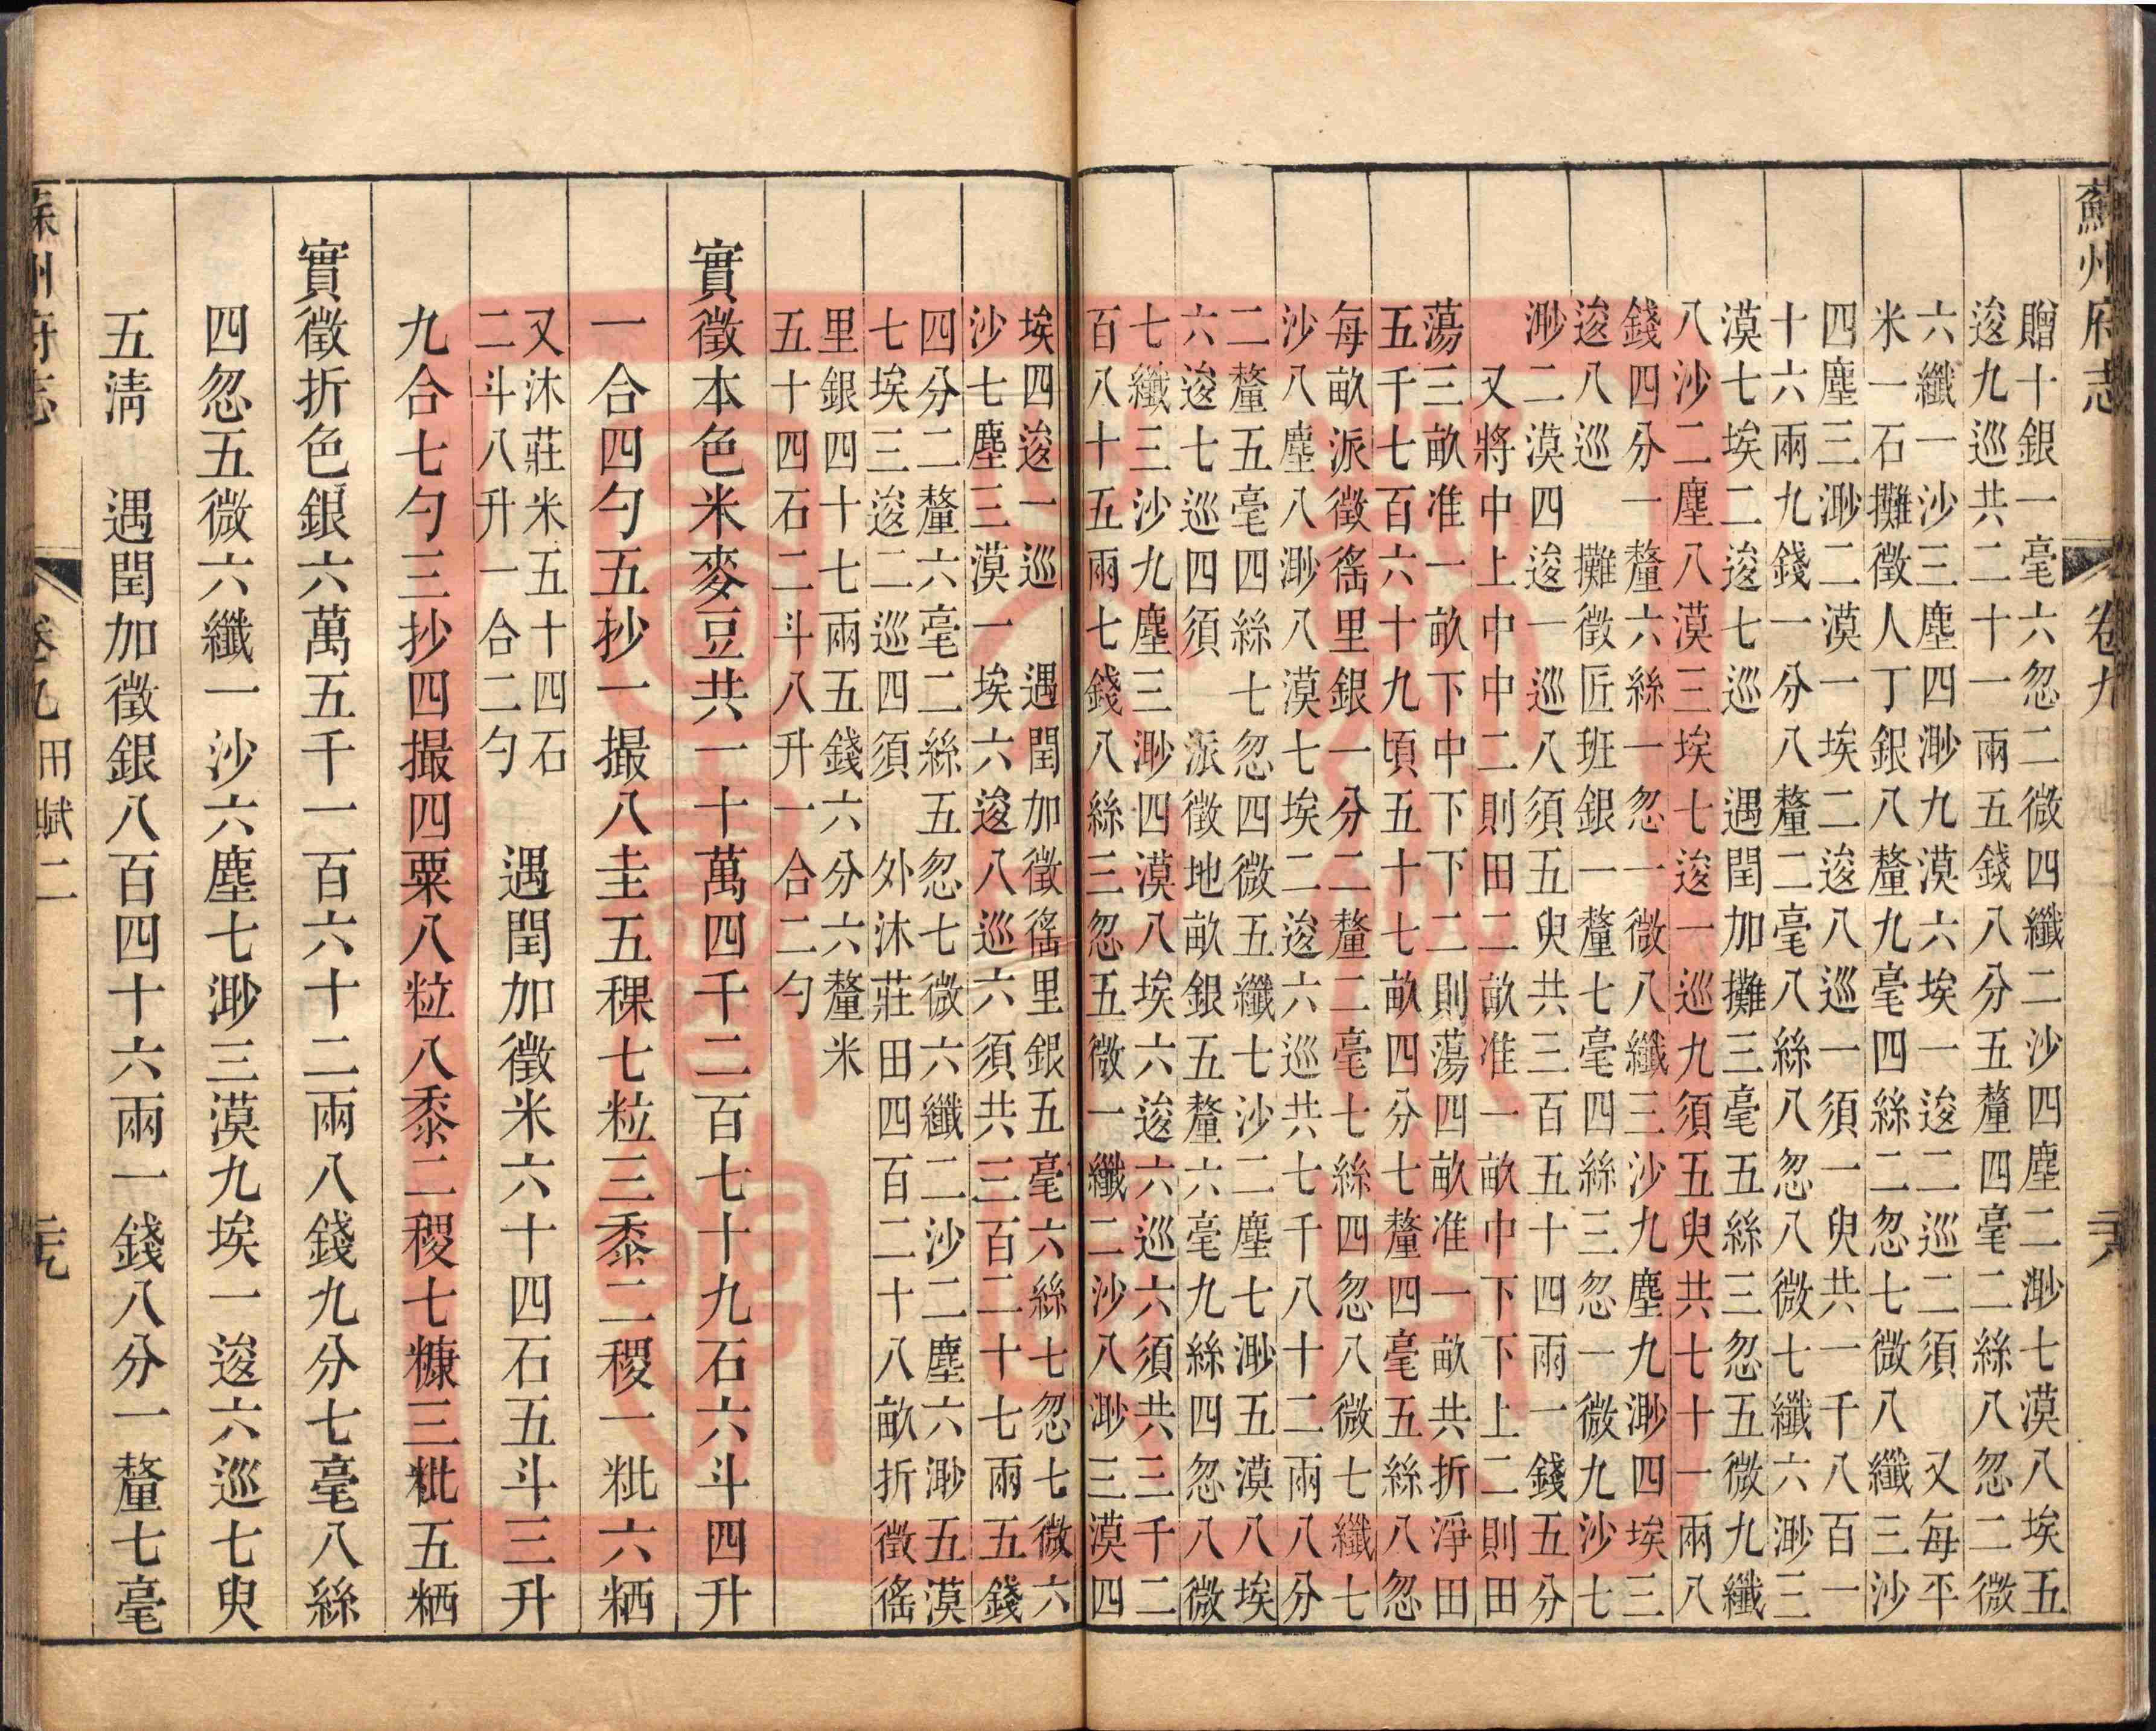 蘇州府志 卷九
贈十銀一毫六忽二微四纖二沙四塵二渺七漠八埃五
逡九巡共二十一兩五錢八分五釐四毫二絲八忽二微
六纖一沙三塵四渺九漠六埃一逡二巡二須 又每平
米一石攤徵人丁銀八釐九毫四絲二忽七微八纖三沙
四塵三渺二漠一埃二逡八巡一須一臾共一千八百一
十六兩九錢一分八釐二毫八絲八忽八微七纖六渺三
漠七埃二逡七巡 遇閏加攤三毫五絲三忽五微九纖
八沙二塵八漠三埃七逡一巡九須五臾共七十一兩八
錢四分一釐六絲一忽一微八纖三沙九塵九渺四埃三
逡八巡 攤徵匠班銀一釐七毫四絲三忽一微九沙七
渺二漠四逡一巡八須五臾共三百五十四兩一錢五分
又將中上中中中二則田二畝准一畝中下下上二則田
蕩三畝准一畝下中下下二則蕩四畝准一畝共折淨田
五千七百六十九頃五十七畝四分七釐四毫五絲八忽
每畝派徵徭里銀一分二釐二毫七絲四忽八微七纖七
沙八塵八渺八漠七埃二逡六巡共七千八十二兩八分
二釐五毫四絲七忽四微五纖七沙二塵七渺五漠八埃
六逡七巡四須 派徵地畝銀五釐六毫九絲四忽八微
七纖三沙九塵三渺四漠八埃六逡六巡六須共三千二
百八十五兩七錢八絲三忽五微一纖二沙八渺三漠四
埃四逡一巡 遇閏加徵徭里銀五毫六絲七忽七微六
沙七塵三漠一埃六逡八巡六須共三百二十七兩五錢
四分二釐六毫二絲五忽七微六纖二沙二塵六渺五漠
七埃三逡二巡四須 外沐莊田四百二十八畝折徵徭
里銀四十七兩五錢六分六釐米
五十四石二斗八升一合二勺
實徵本色米麥豆共一十萬四千二百七十九石六斗四升
一合四勺五抄一撮八圭五稞七粒三黍二稷一粃六粞
又沐莊米五十四石
二斗八升一合二勺
遇閏加徵米六十四石五斗三升
九合七勺三抄四撮四粟八粒八黍二稷七糠三粃五粞
實徵折色銀六萬五千一百六十二兩八錢九分七毫八絲
四忽五微六纖一沙六塵七渺三漠九埃一逡六巡七臾
五淸 遇閏加徵銀八百四十六兩一錢八分一釐七毫
蘇州府志 卷九 田賦二